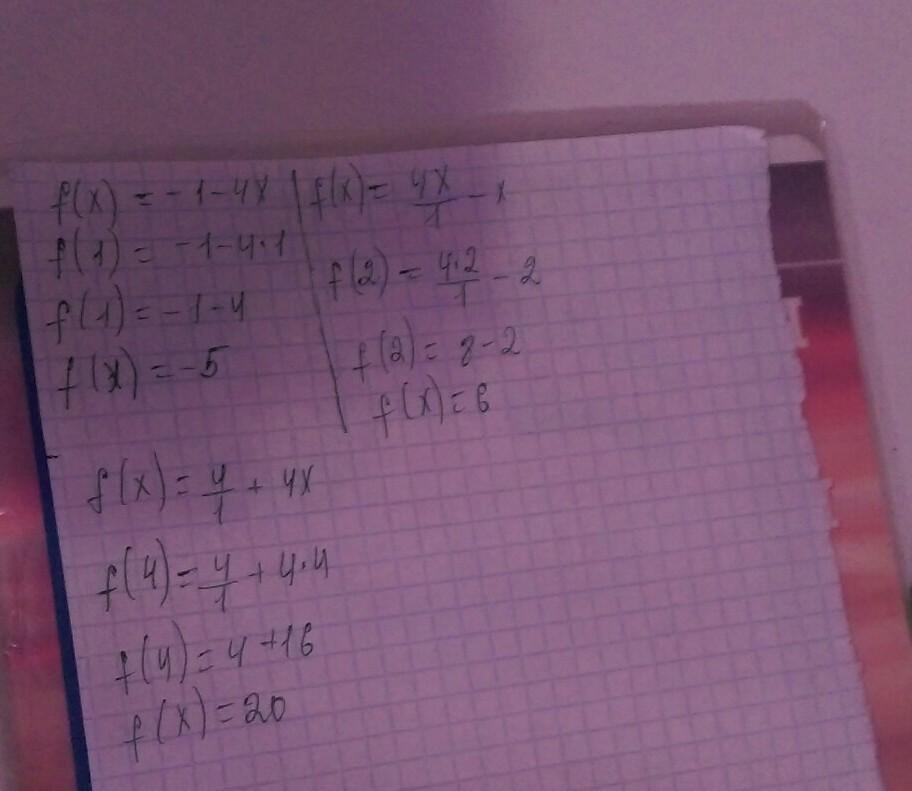 f(x) = -1-4x
f(1) = -1-4·1
f(1) = -1-4
f(x) = -5
f(x) = 4x/1 - x
f(2) = 4·2/1 - 2
f(2) = 8-2
f(x) = 6
f(x) = 4/1 + 4x
f(4) = 4/1 + 4·4
f(4) = 4+16
f(x) = 20